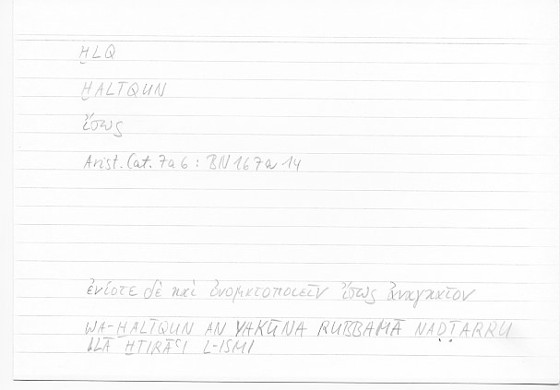 ḪLQ
ḪALĪQUN
ἴσως
Arist. Cat. 7a6 : BN 167a 14
ἐνίοτε δὲ καὶ ὀνοματοποιεῖν ἴσως ἀναγκαῖον
WA-ḪALĪQUN AN YAKŪNA RUBBAMĀ NAḌṬARRU
ILĀ ḪTIRĀʿI L-ISMI